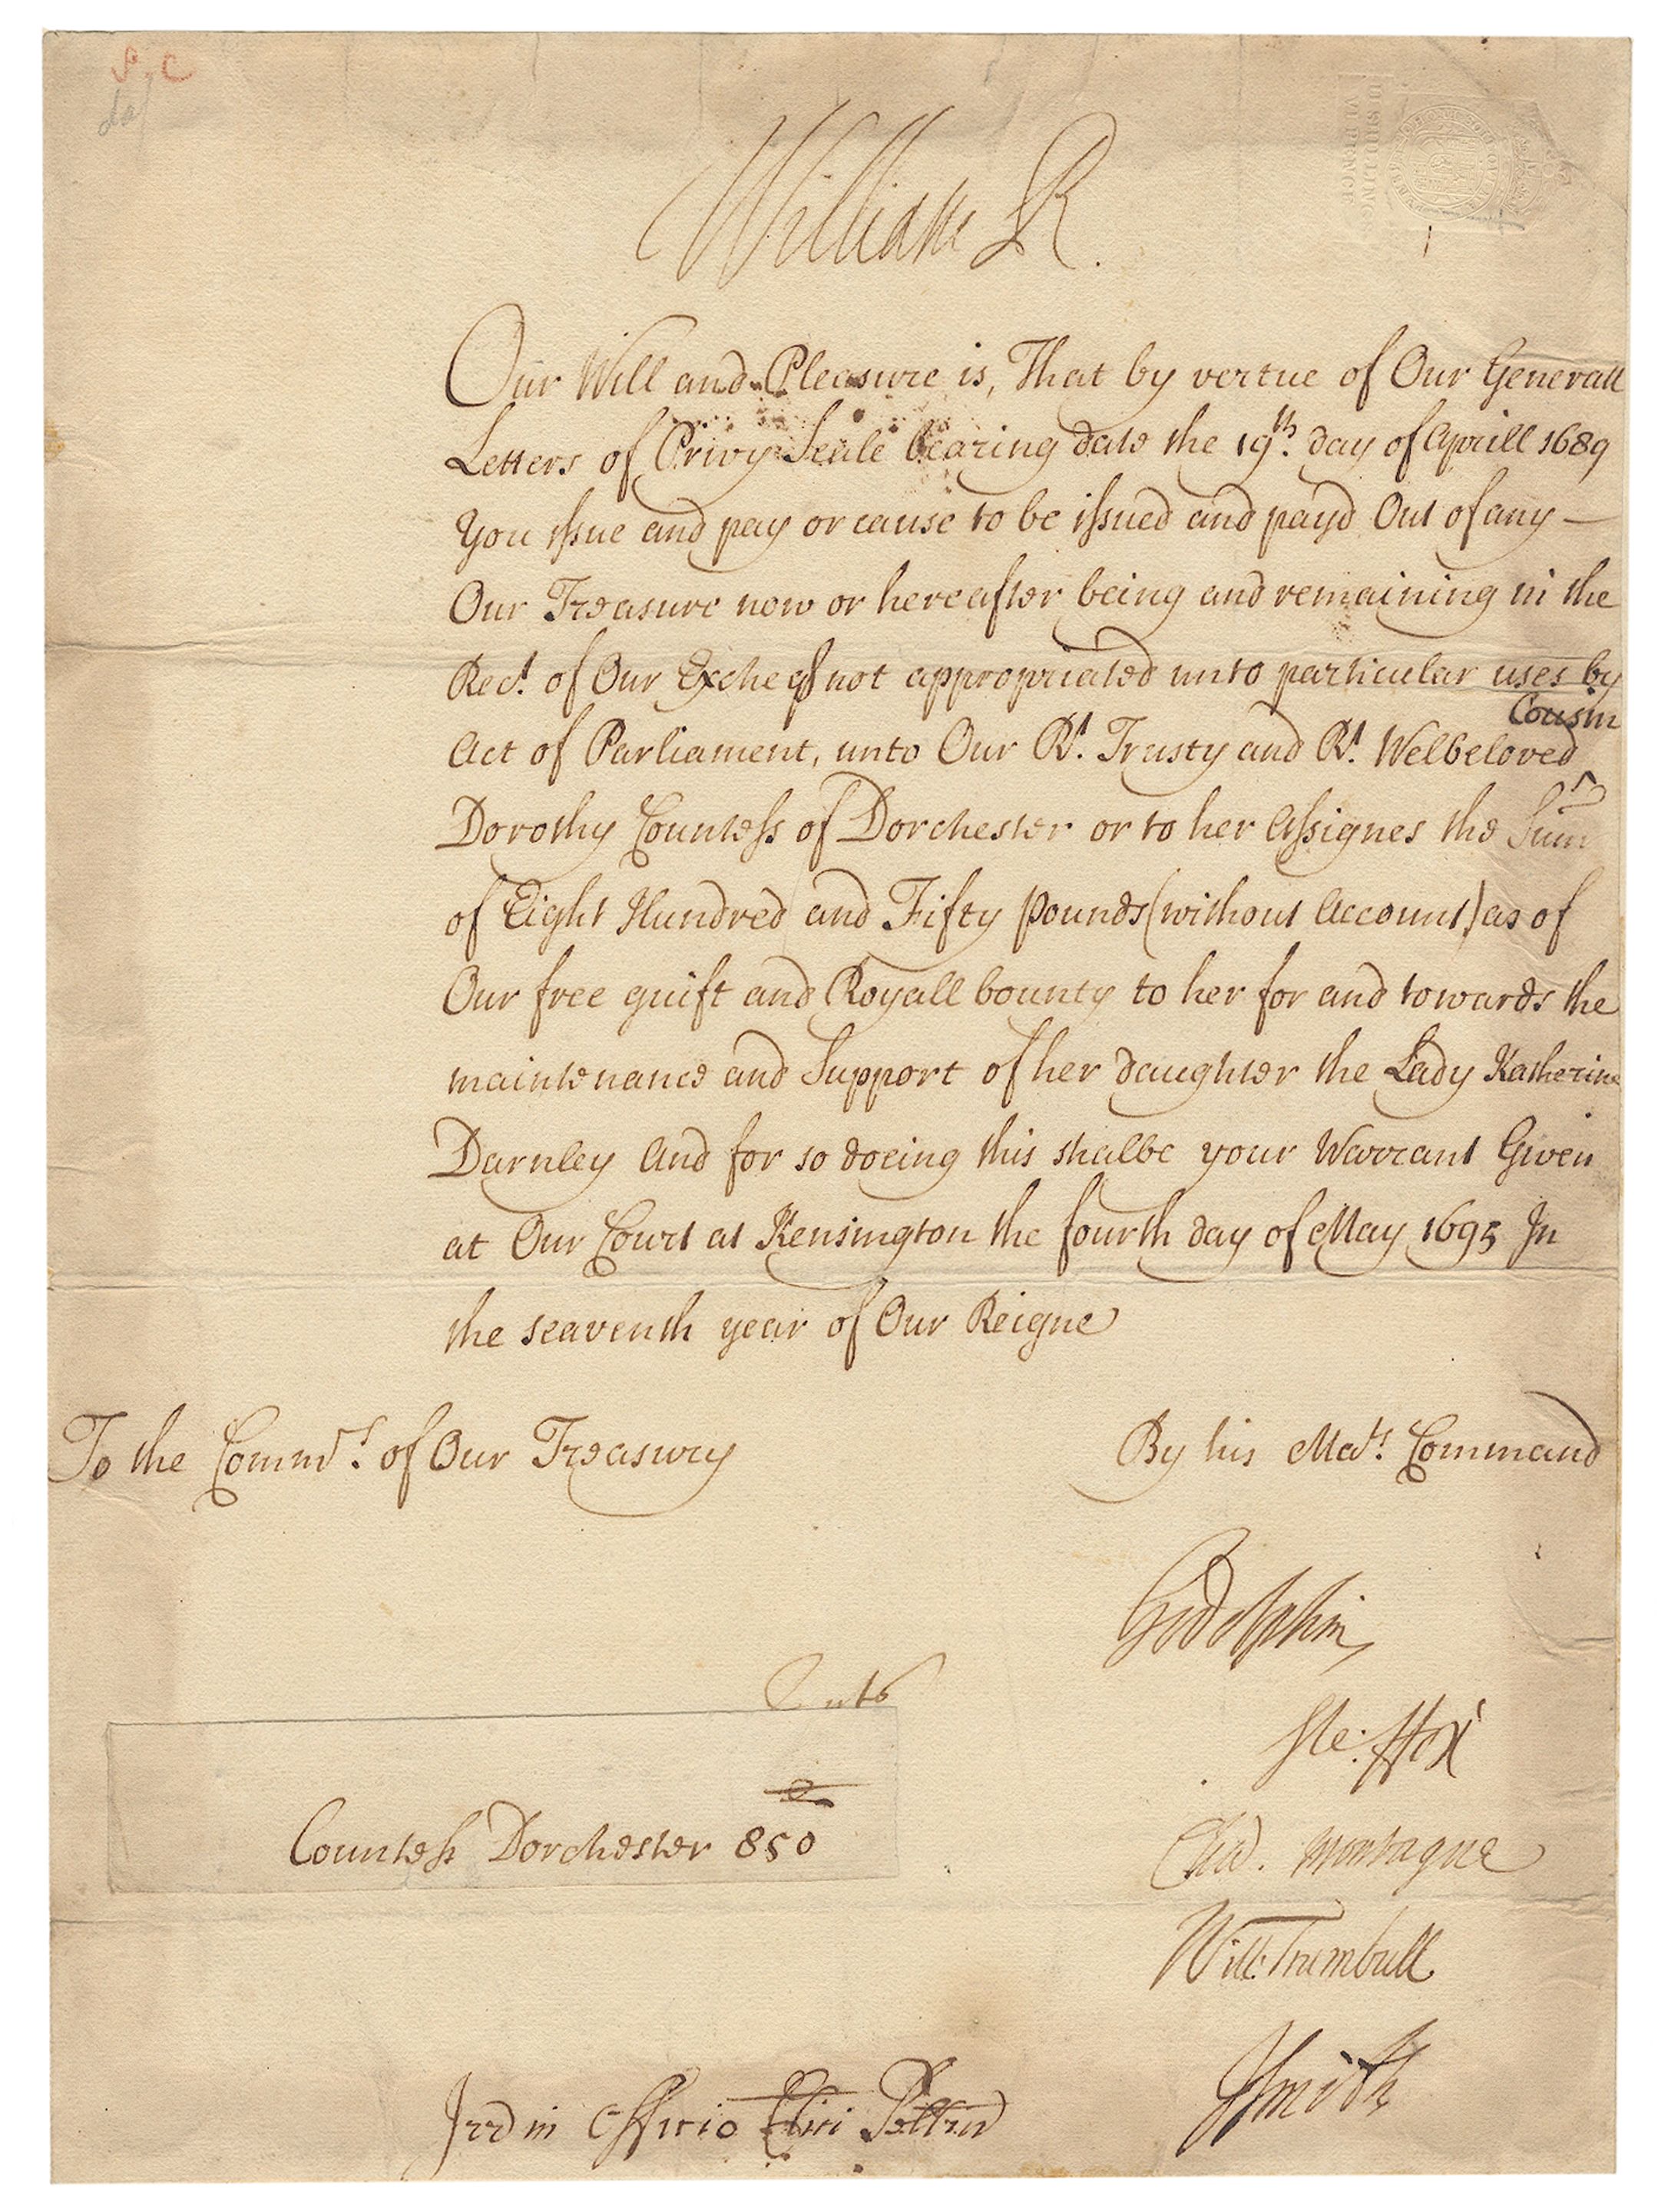 William R.
Our Will and Pleasure is, That by vertue of Our Generall
Letters of Privy Seale bearing date the 19th. day of Aprill 1689
You issue and pay or cause to be issued and payd Out of any —
Our Treasure now or hereafter being and remaining in the
Rect. of Our Excheqr not appropriated unto particular uses by
Cousin
Act of Parliament, unto Our Rt. Trusty and Rt. Welbeloved ^
Dorothy Countess of Dorchester or to her Assignes the Sum
of Eight Hundred and Fifty Pounds (without Account) as of
Our free guift and Royall bounty to her for and towards the
maintenance and Support of her daughter the Lady Katherine
Darnley And for so doeing this shalbe your Warrant Given
at Our Court at Kensington the fourth day of May 1695 In
the seaventh year of Our Reigne
To the Commrs. of Our Treasury
By his Mats. Command
Godolphin
Ste: ffox
Cha. Montague
Countess Dorchester 850
Will: Trumbull
JSmith
Irr in Officio